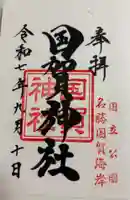 奉拝
国立公園
名勝国賀海岸
国賀神社
国賀神社
令和七年九月十日